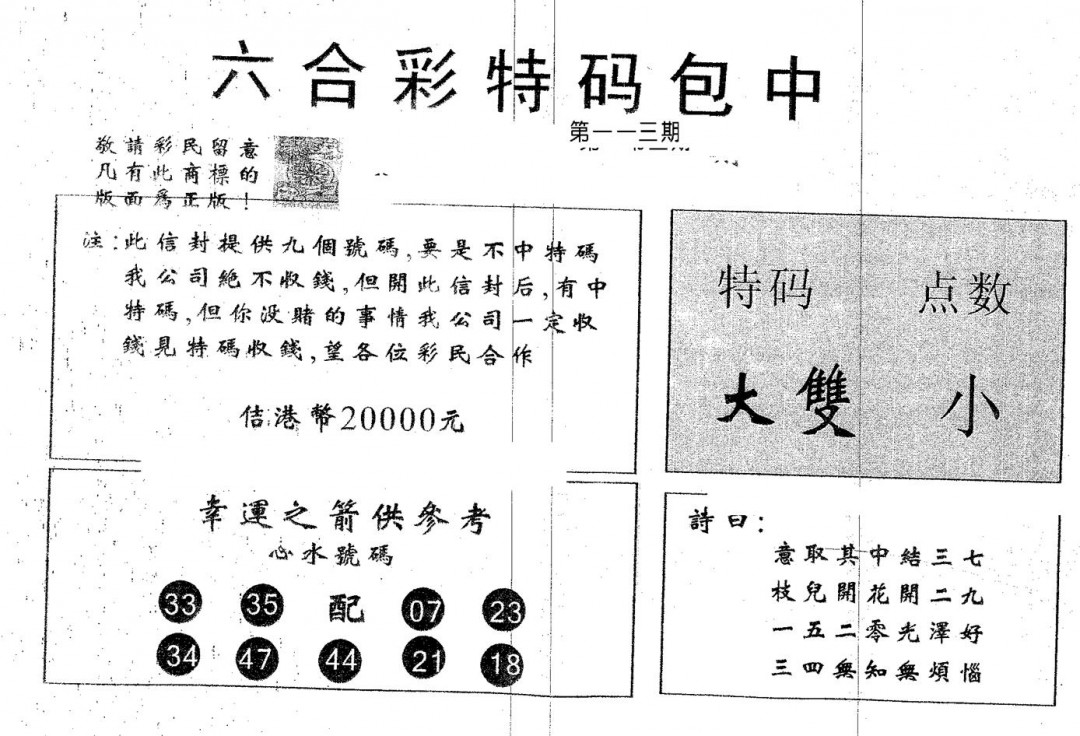 六合彩特码包中
第一一三期
敬請彩民留意
凡有此商標的
版面爲正版！
注:此信封提供九個號碼,要是不中特碼
我公司絶不收錢,但開此信封后,有中
特碼,但你没賭的事情我公司一定收
錢見特碼收錢,望各位彩民合作
佶港幣20000元
特码 点数
大雙 小
幸運之箭供參考
心水號碼
33 35 配 07 23
34 47 44 21 18
詩曰:
意取其中結三七
枝兒開花開二九
一五二零光澤好
三四無知無煩惱